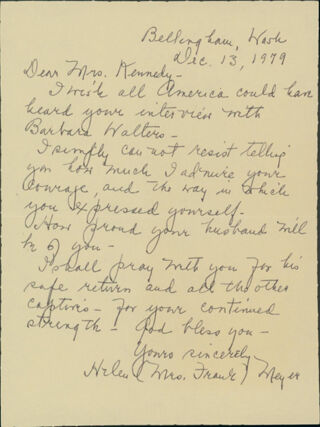 Bellingham, Wash
Dec. 13, 1979
Dear Mrs. Kennedy-
I wish all America could have
heard your interview with
Barbara Walters-
I simply can not resist telling
you how much I admire your
courage, and the way in which
you expressed yourself-
How proud your husband will
be of you-
I shall pray with you for his
safe return and all the other
captives- for your continued
strength- God bless you-
Yours sincerely
Helen (Mrs. Frank) Meyer